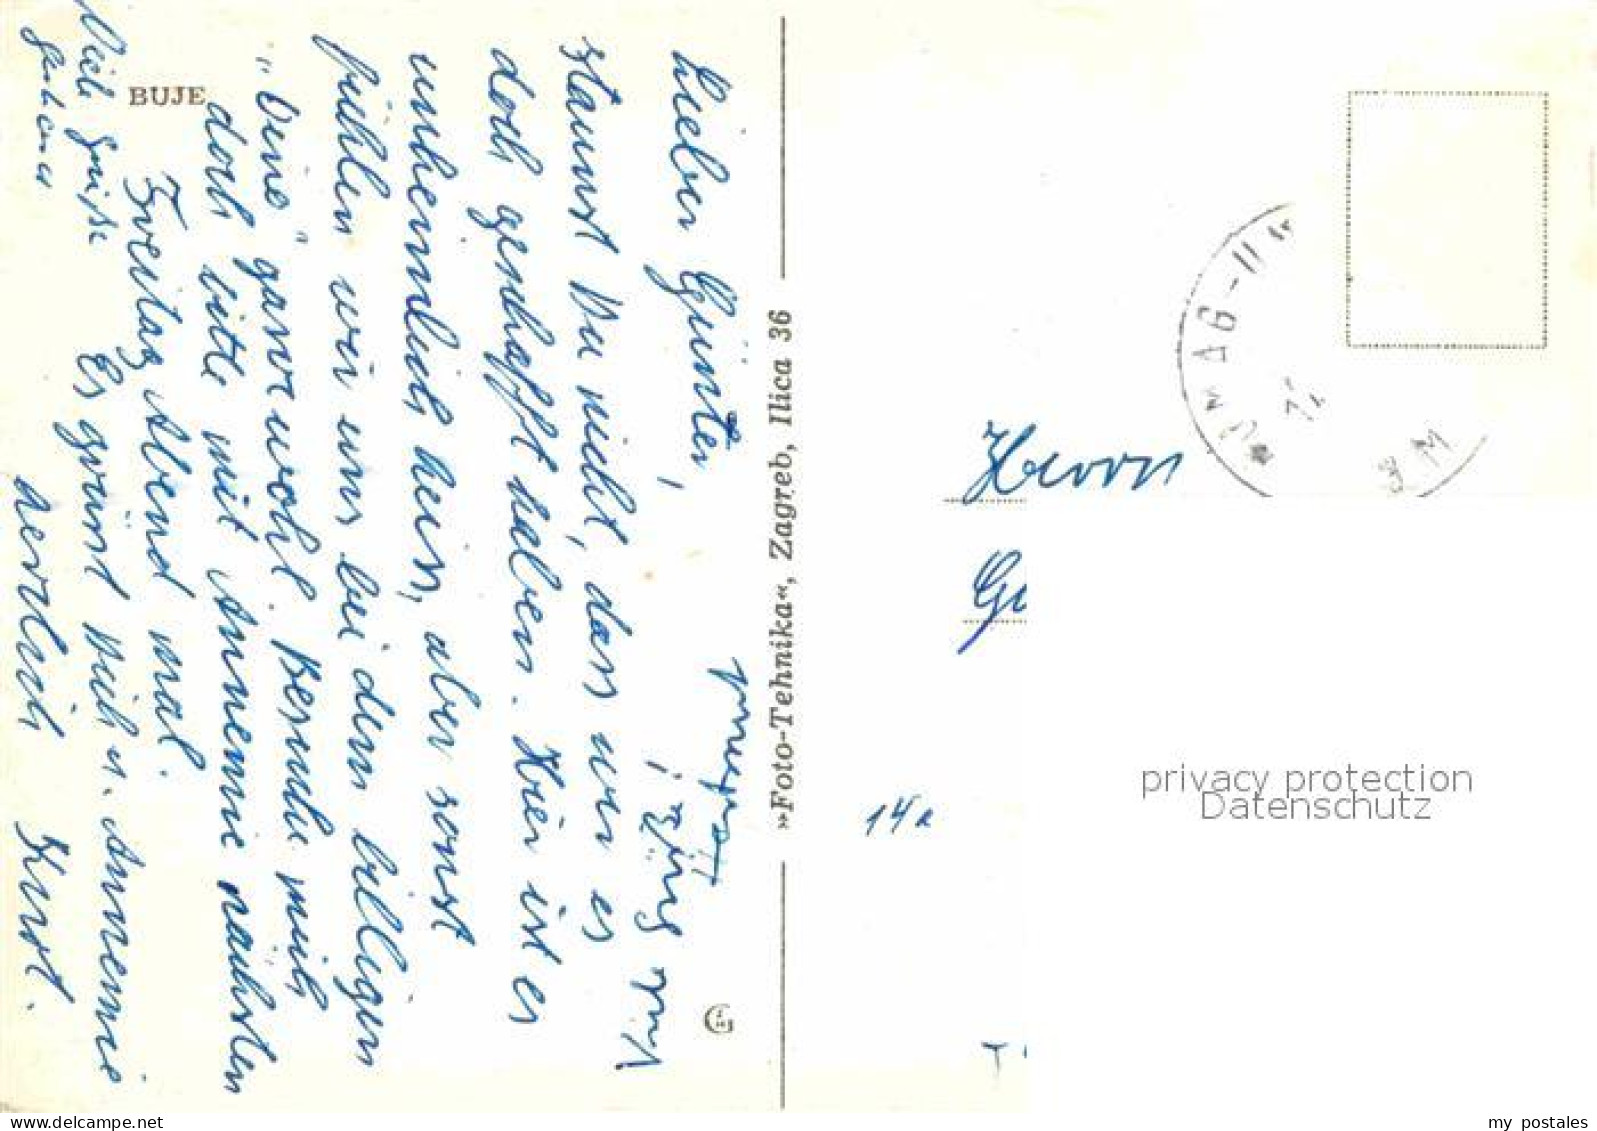 BUJE
Lieber Günter,
staunst Du nicht, dass wir es
doch geschafft haben. Hier ist es
unheimlich heiss, aber sonst
fühlen wir uns bei dem billigen
"Vino" ganz wohl. Besuche mich
doch bitte mit Annemie nächsten
Freitag Abend mal.
Es grüsst Dich u. Annemie
herzlich Kurt.
Viele Grüsse
»Foto-Tehnika«, Zagreb, Ilica 36
UMAG
Herrn
14a
privacy protection
Datenschutz
www.delcampe.net
my_postales